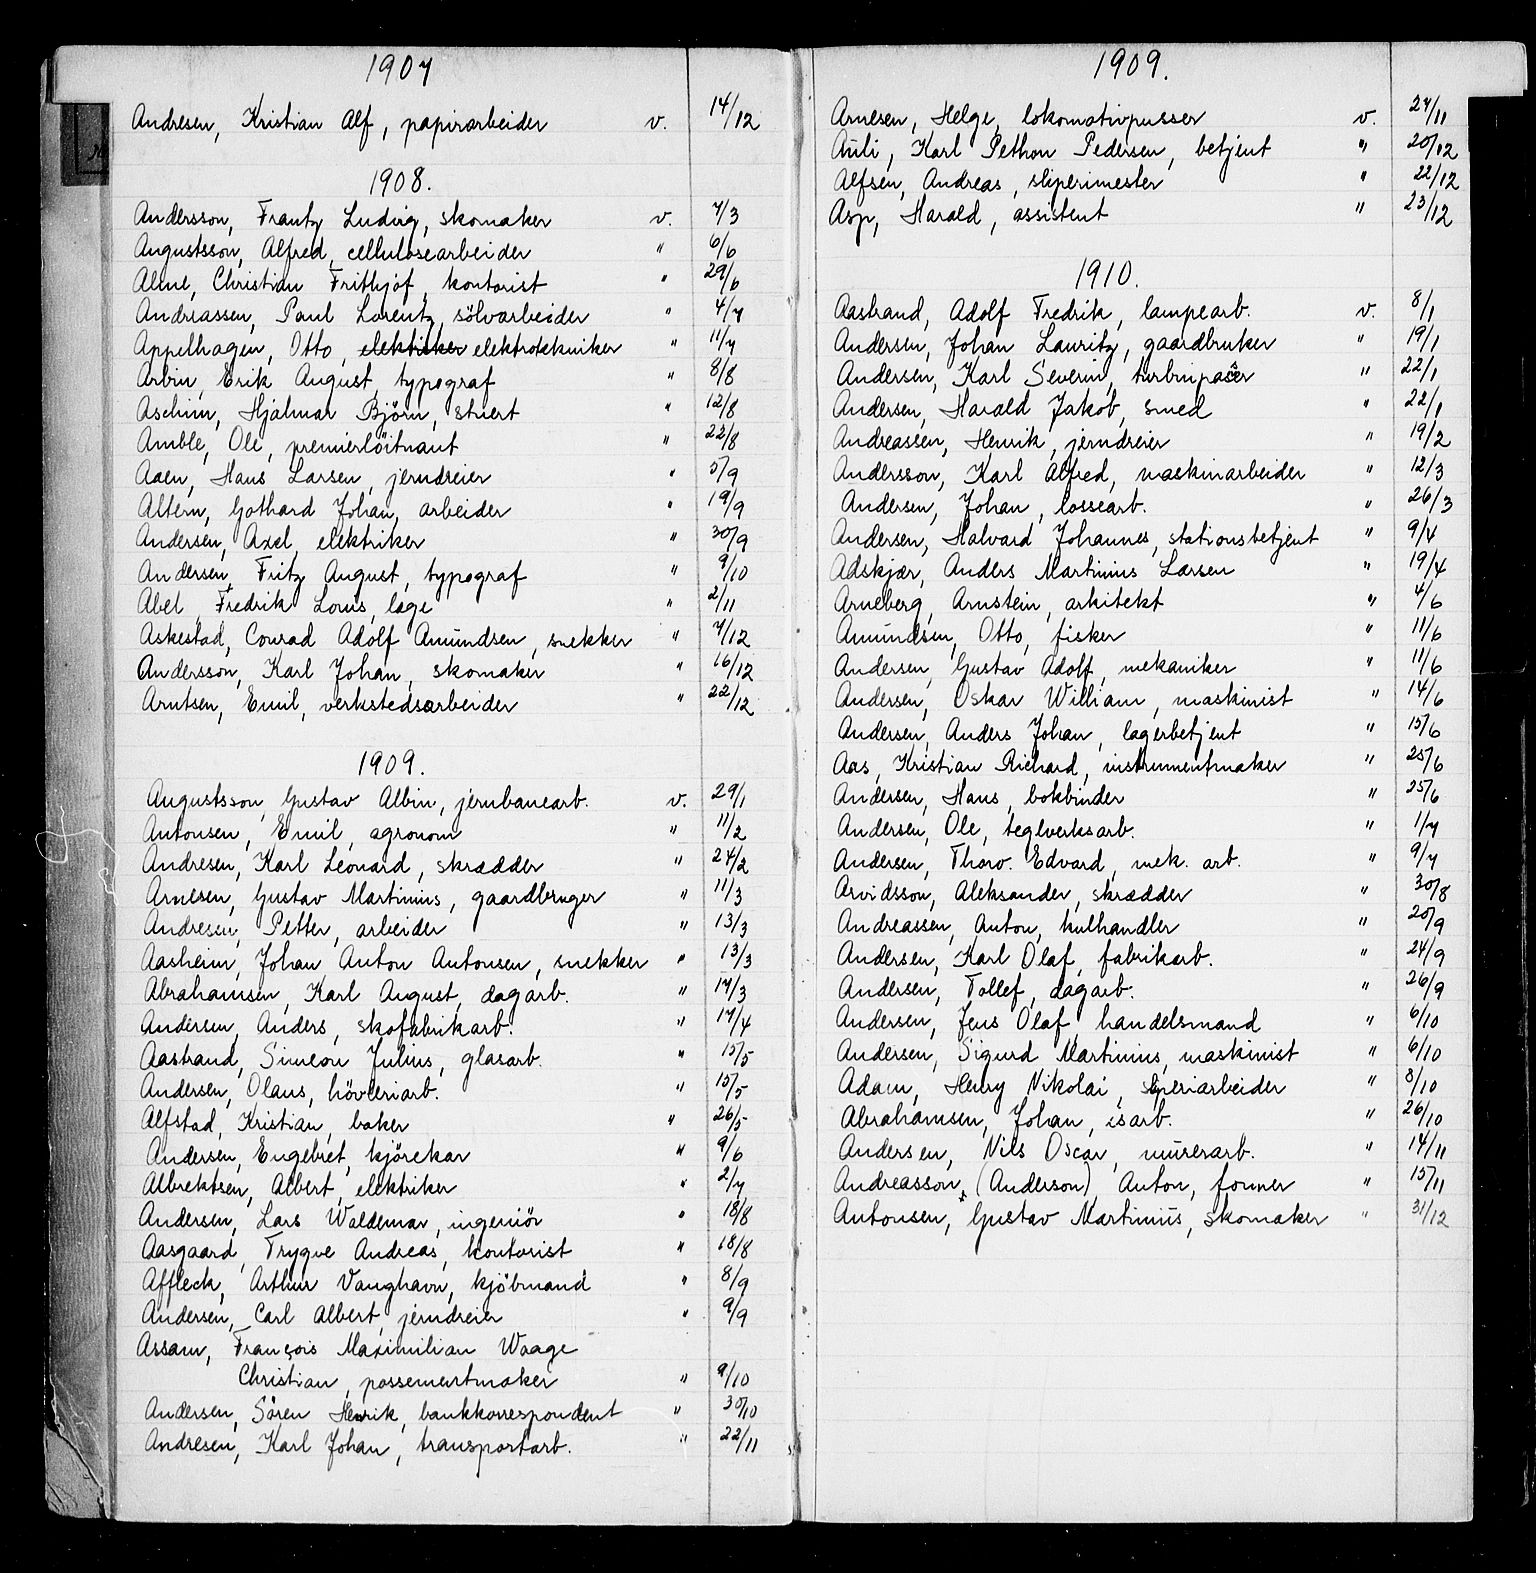 1907
Andresen, Kristian Alf, papirarbeider v. 14/12
1908.
Andersson, Frantz Ludvig, skomaker v. 7/3
Augustsson, Alfred, cellulosearbeider " 6/6
Alme, Christian Frithjof, kontorist " 29/6
Andreassen, Paul Lorentz, sölvarbeider " 4/7
Appelhagen, Otto, elektriker elektrotekniker " 11/7
Arbin, Erik August, typograf " 8/8
Aschim, Hjalmar Björn, stuert " 12/8
Amble, Ole, premierlöitnant " 22/8
Aaen, Hans Larsen, jerndreier " 5/9
Altern, Gothard Johan, arbeider " 19/9
Andersen, Axel, elektriker " 30/9
Andersen, Fritz August, typograf " 9/10
Abel, Fredrik Louis, læge " 2/11
Askestad, Conrad Adolf Amundsen, snekker " 7/12
Andersson, Karl Johan, skomaker " 16/12
Arntsen, Emil, verkstedsarbeider " 22/12
1909.
Augustsson, Gustav Albin, jernbanearb. v. 29/1
Antonsen, Emil, agronom " 11/2
Andresen, Karl Leonard, skrædder " 24/2
Arnesen, Gustav Martinius, gaardbruger " 11/3
Andresen, Petter, arbeider " 13/3
Aasheim, Johan Anton Antonsen, snekker " 13/3
Abrahamsen, Karl August, dagarb. " 17/3
Andersen, Anders, skofabrikarb. " 17/4
Aastrand, Simeon Julius, glasarb. " 15/5
Andersen, Olaus, hövleriarb. " 15/5
Alfstad, Kristian, baker " 26/5
Andersen, Engebret, kjörekar " 9/6
Albrektsen, Albert, elektriker " 2/7
Andersen, Lars Waldemar, ingeniör " 18/8
Aasgaard, Trygve Andreas, kontorist " 18/8
Affleck, Arthur Vaughavn, kjöbmand " 8/9
Andersen, Carl Albert, jerndreier " 9/9
Assam, François Maximilian Waage
Christian, possementmaker " 9/10
Andersen, Sören Henrik, bankkorrespondent " 30/10
Andresen, Karl Johan, transportarb. " 22/11
1909.
Arnesen, Helge, lokomotivpusser v. 27/11
Auli, Karl Pethon Pedersen, betjent " 20/12
Alfsen, Andreas, sliperimester " 22/12
Asp, Harald, assistent " 23/12
1910.
Aastrand, Adolf Fredrik, lampearb. v. 8/1
Andersen, Johan Lauritz, gaardbruker " 19/1
Andersen, Karl Severin, turbinpasser " 22/1
Andersen, Harald Jakob, smed " 22/1
Andreassen, Henrik, jerndreier " 19/2
Andersson, Karl Alfred, maskinarbeider " 12/3
Andersen, Johan, lossearb. " 26/3
Andersen, Halvard Johannes, stationsbetjent " 9/4
Adskjær, Anders Martinius Larsen " 19/4
Arneberg, Arnstein, arkitekt " 4/6
Amundsen, Otto, fisker " 11/6
Andersen, Gustav Adolf, mekaniker " 11/6
Andersen, Oskar William, maskinist " 14/6
Andersen, Anders Johan, lagerbetjent " 15/6
Aas, Kristian Richard, instrumentmaker " 25/6
Andersen, Hans, bokbinder " 25/6
Andersen, Ole, teglverksarb. " 1/7
Andersen, Thorv. Edvard, mek. arb. " 9/7
Arvidsson, Aleksander, skrædder " 30/8
Andreassen, Anton, kulhandler " 20/9
Andersen, Karl Olaf, fabrikarb. " 24/9
Andersen, Tollef, dagarb. " 26/9
Andersen, Jens Olaf, handelsmand " 6/10
Andersen, Sigurd Martinius, maskinist " 6/10
Adam, Henry Nikolai, sliperiarbeider " 8/10
Abrahamsen, Johan, isarb. " 26/10
Andersen, Nils Oscar, murerarb. " 14/11
Andreasson, (Anderson) Anton, former " 15/11
Antonsen, Gustav Martinius, skomaker " 31/12